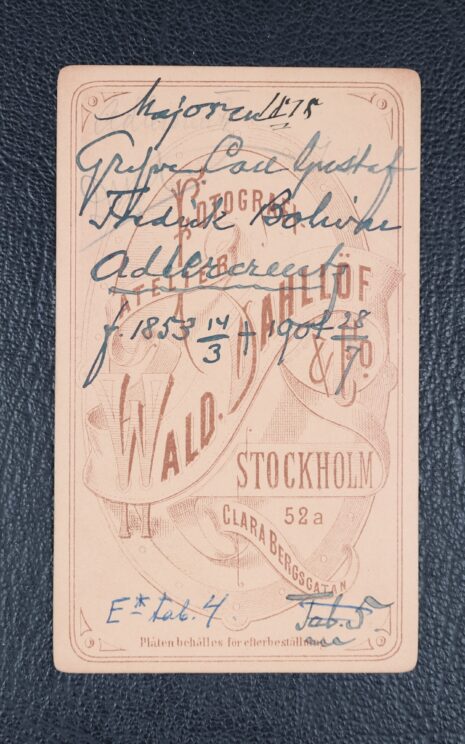 Majoren 1875
Grefve Carl Gustaf
Fredrik Bolivar
Adlercreutz
f. 1853 14/3 + 1907 28/7
FOTOGRAFI
ATELIER
WALD. DAHLLÖF
& Co.
STOCKHOLM
52a
CLARA BERGSGATAN
E* tab. 4.
Tab. 5
Plåten behålles för efterbeställning